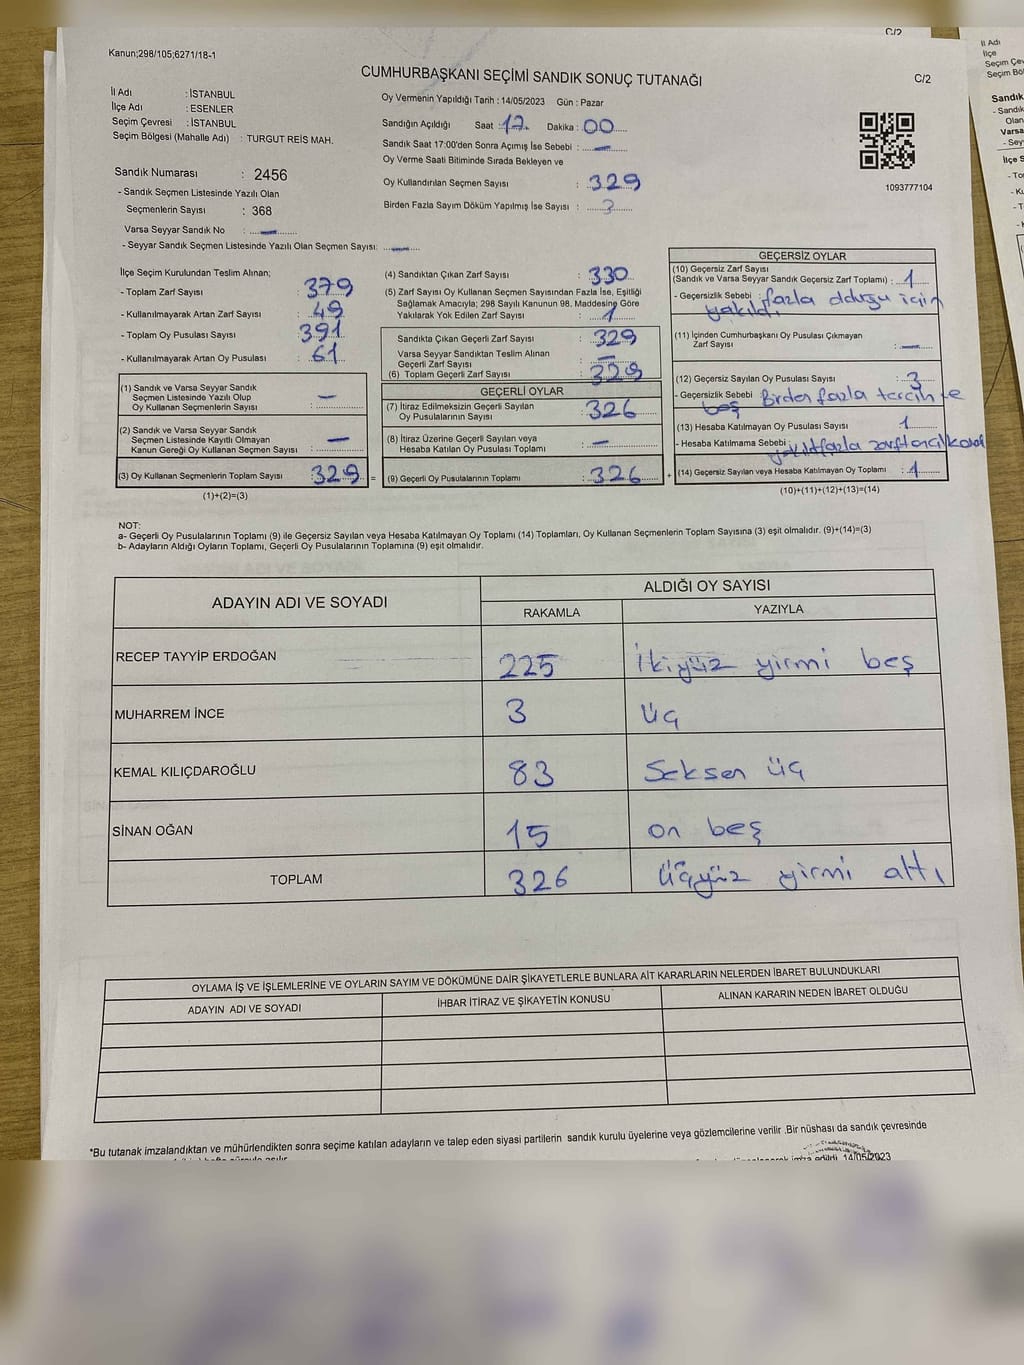 C/2
Kanun;298/105;6271/18-1
CUMHURBAŞKANI SEÇİMİ SANDIK SONUÇ TUTANAĞI
C/2
İl Adı : İSTANBUL
İlçe Adı : ESENLER
Seçim Çevresi : İSTANBUL
Seçim Bölgesi (Mahalle Adı) : TURGUT REİS MAH.
Sandık Numarası : 2456
- Sandık Seçmen Listesinde Yazılı Olan
Seçmenlerin Sayısı : 368
Varsa Seyyar Sandık No : —
- Seyyar Sandık Seçmen Listesinde Yazılı Olan Seçmen Sayısı: —
Oy Vermenin Yapıldığı Tarih : 14/05/2023 Gün : Pazar
Sandığın Açıldığı Saat : 17 Dakika : 00
Sandık Saat 17:00'den Sonra Açımış İse Sebebi : —
Oy Verme Saati Bitiminde Sırada Bekleyen ve
Oy Kullandırılan Seçmen Sayısı : 329
Birden Fazla Sayım Döküm Yapılmış İse Sayısı :
1093777104
İlçe Seçim Kurulundan Teslim Alınan;
- Toplam Zarf Sayısı : 379
- Kullanılmayarak Artan Zarf Sayısı : 49
- Toplam Oy Pusulası Sayısı : 391
- Kullanılmayarak Artan Oy Pusulası : 61
(1) Sandık ve Varsa Seyyar Sandık
Seçmen Listesinde Yazılı Olup
Oy Kullanan Seçmenlerin Sayısı : —
(2) Sandık ve Varsa Seyyar Sandık
Seçmen Listesinde Kayıtlı Olmayan
Kanun Gereği Oy Kullanan Seçmen Sayısı : —
(3) Oy Kullanan Seçmenlerin Toplam Sayısı : 329 =
(1)+(2)=(3)
(4) Sandıktan Çıkan Zarf Sayısı : 330
(5) Zarf Sayısı Oy Kullanan Seçmen Sayısından Fazla İse, Eşitliği
Sağlamak Amacıyla; 298 Sayılı Kanunun 98. Maddesine Göre
Yakılarak Yok Edilen Zarf Sayısı : 1
Sandıkta Çıkan Geçerli Zarf Sayısı : 329
Varsa Seyyar Sandıktan Teslim Alınan
Geçerli Zarf Sayısı : —
(6) Toplam Geçerli Zarf Sayısı : 329
GEÇERLİ OYLAR
(7) İtiraz Edilmeksizin Geçerli Sayılan
Oy Pusulalarının Sayısı : 326
(8) İtiraz Üzerine Geçerli Sayılan veya
Hesaba Katılan Oy Pusulası Toplamı : —
(9) Geçerli Oy Pusulalarının Toplamı : 326 +
GEÇERSİZ OYLAR
(10) Geçersiz Zarf Sayısı
(Sandık ve Varsa Seyyar Sandık Geçersiz Zarf Toplamı) : 1
- Geçersizlik Sebebi : fazla olduğu için
yakıldı
(11) İçinden Cumhurbaşkanı Oy Pusulası Çıkmayan
Zarf Sayısı : —
(12) Geçersiz Sayılan Oy Pusulası Sayısı : 3
- Geçersizlik Sebebi : Birden fazla tercih ve
boş
(13) Hesaba Katılmayan Oy Pusulası Sayısı : 1
- Hesaba Katılmama Sebebi : fazla zarf
(14) Geçersiz Sayılan veya Hesaba Katılmayan Oy Toplamı :
(10)+(11)+(12)+(13)=(14)
NOT:
a- Geçerli Oy Pusulalarının Toplamı (9) ile Geçersiz Sayılan veya Hesaba Katılmayan Oy Toplamı (14) Toplamları, Oy Kullanan Seçmenlerin Toplam Sayısına (3) eşit olmalıdır. (9)+(14)=(3)
b- Adayların Aldığı Oyların Toplamı, Geçerli Oy Pusulalarının Toplamına (9) eşit olmalıdır.
ADAYIN ADI VE SOYADI
ALDIĞI OY SAYISI
RAKAMLA YAZIYLA
RECEP TAYYİP ERDOĞAN 225 İkiyüz yirmi beş
MUHARREM İNCE 3 üç
KEMAL KILIÇDAROĞLU 83 Seksen üç
SİNAN OĞAN 15 on beş
TOPLAM 326 üçyüz yirmi altı
OYLAMA İŞ VE İŞLEMLERİNE VE OYLARIN SAYIM VE DÖKÜMÜNE DAİR ŞİKAYETLERLE BUNLARA AİT KARARLARIN NELERDEN İBARET BULUNDUKLARI
ADAYIN ADI VE SOYADI İHBAR İTİRAZ VE ŞİKAYETİN KONUSU ALINAN KARARIN NEDEN İBARET OLDUĞU
*Bu tutanak imzalandıktan ve mühürlendikten sonra seçime katılan adayların ve talep eden siyasi partilerin sandık kurulu üyelerine veya gözlemcilerine verilir .Bir nüshası da sandık çevresinde
imza edildi. 14/05/2023
İl Adı
İlçe
Sandık